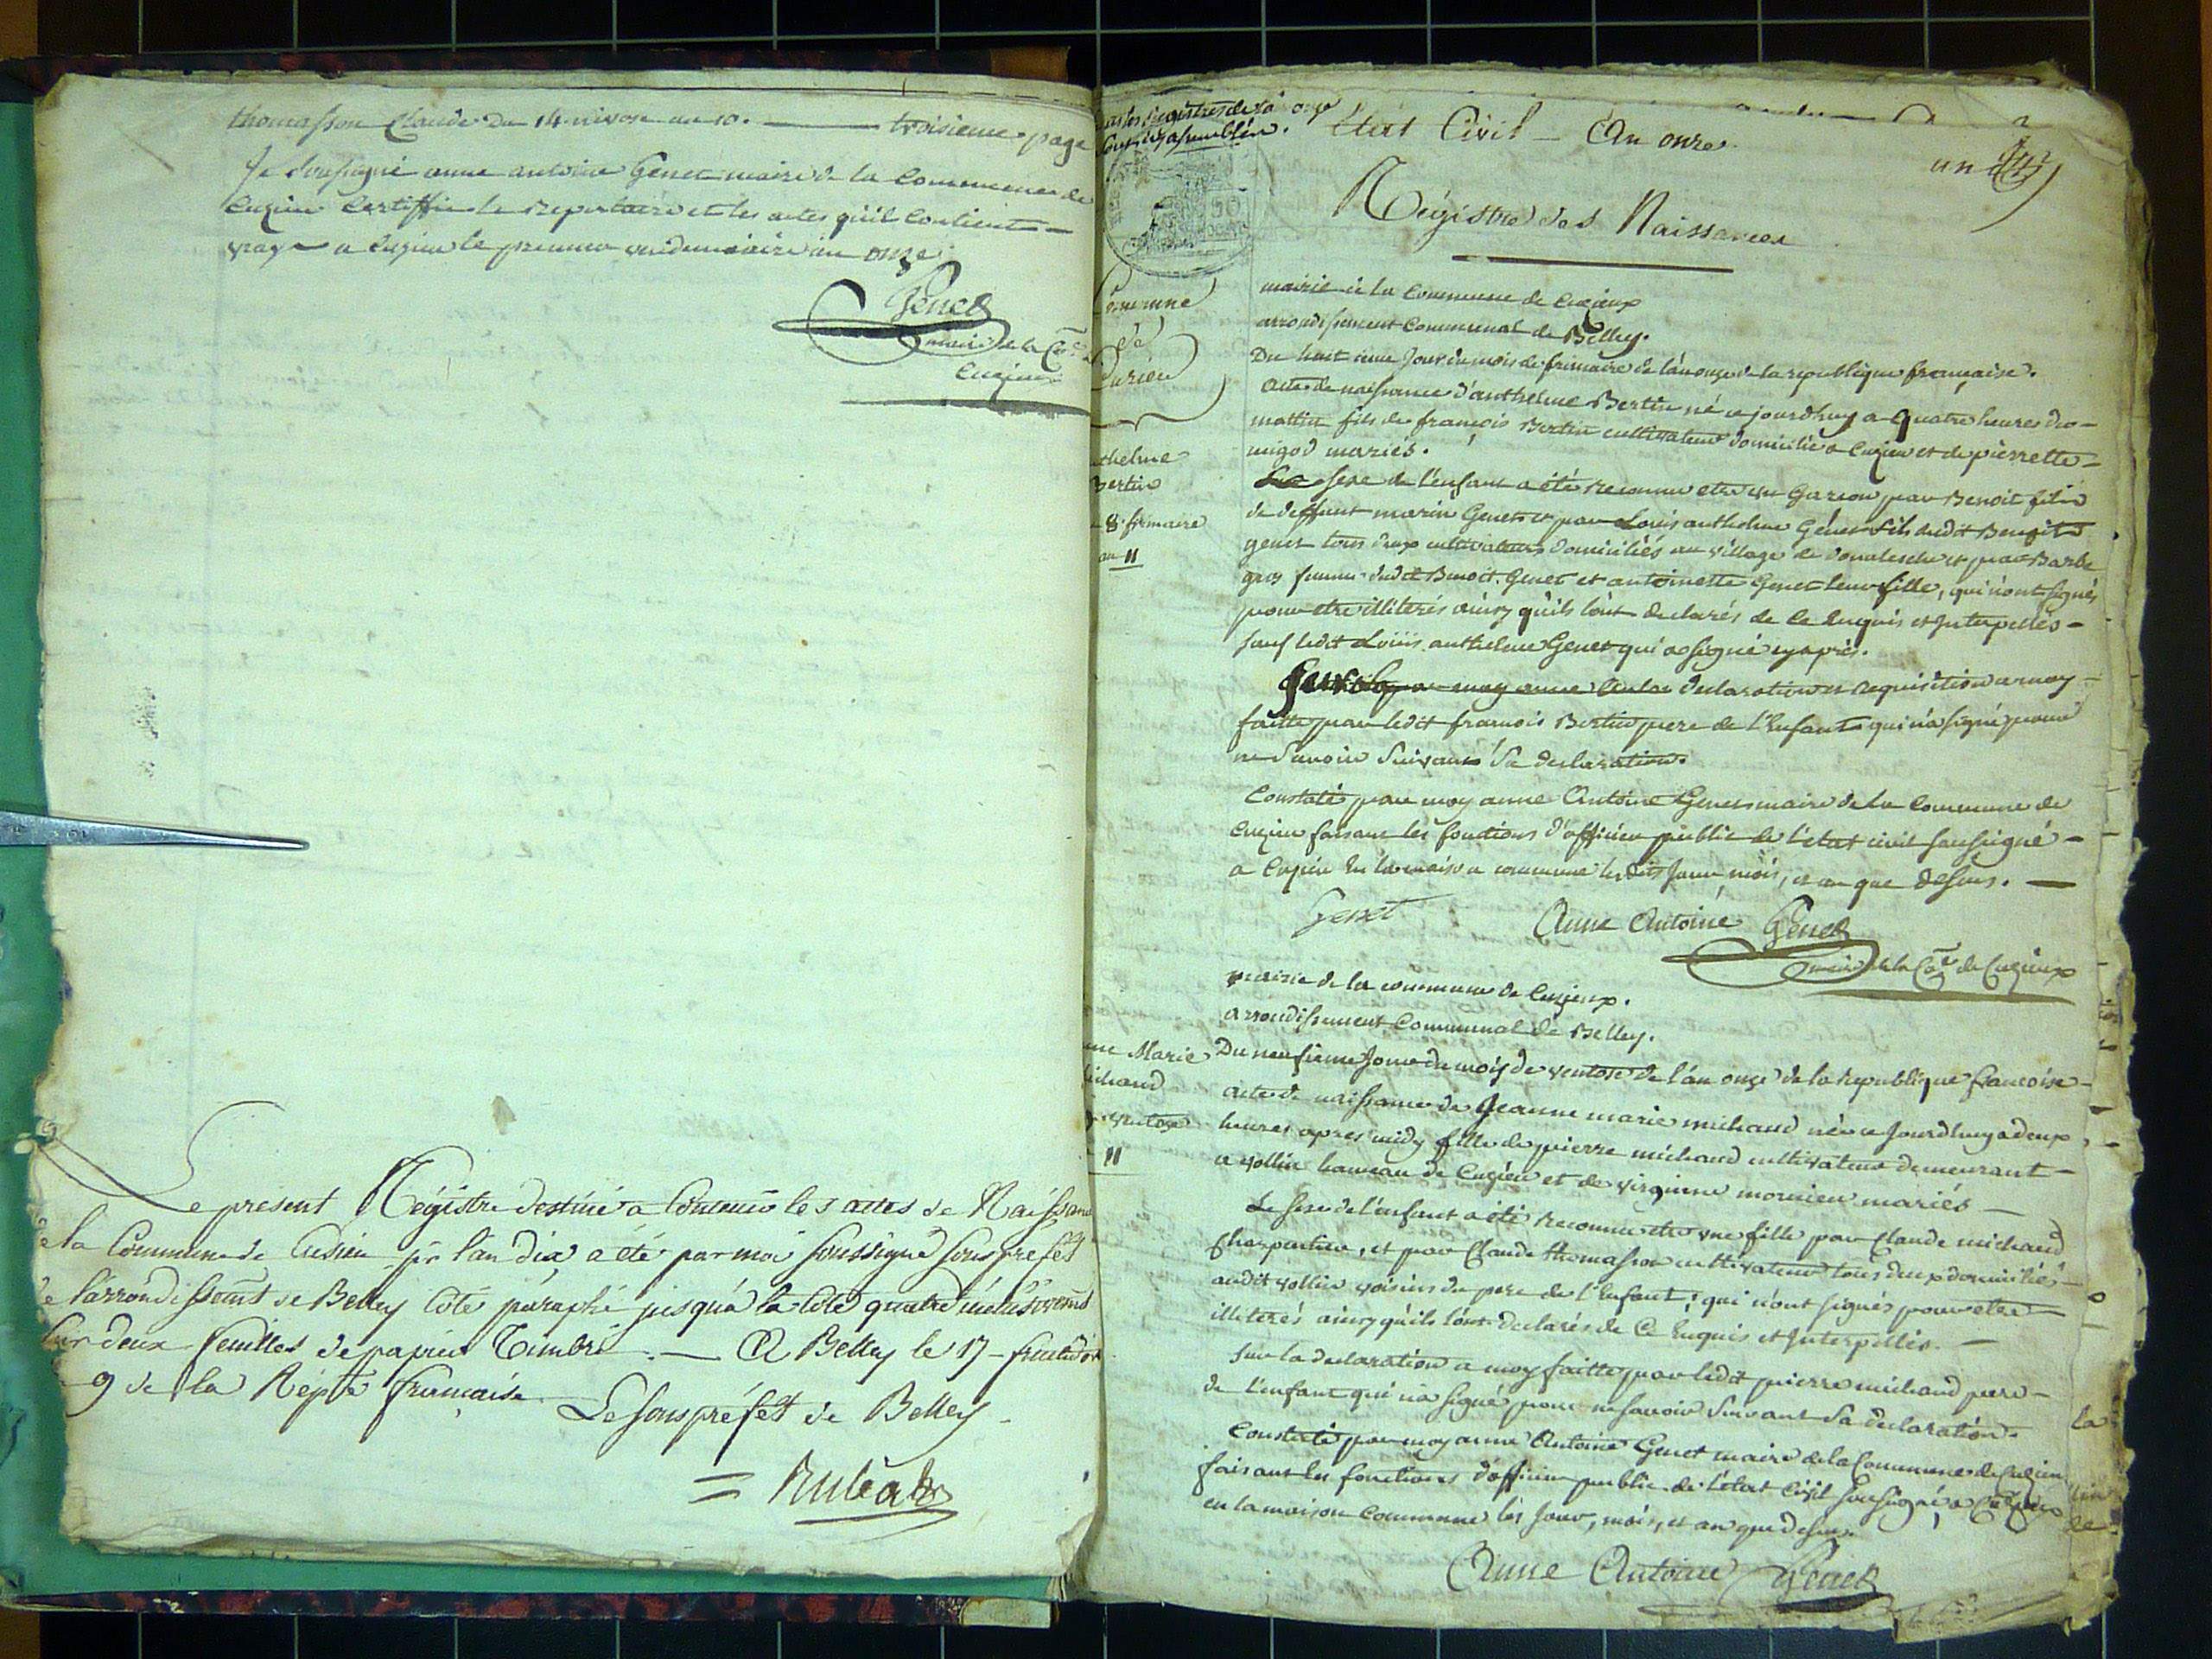 thomasson Claude Du 14 nivose an 10. — troisieme page
Je soussigné anne antoine Genet maire de la Commune de
Cuzieu Certiffie le Repertoire et les actes qu'il Contient —
a Cuzieu le premier vendemiaire an onze
Genet
maire de la Cne
Cuzieu
Le présent Régistre destiné a Contenir les actes de Naissance
de la Commune de Cusieu pr l'an dix a été par moi soussigné sous prefet
de l'arrondissemt de Belley Coté paraphé jusqu'à la Cote quatre
sur deux feuilles de papier Timbré. — A Belley le 17 fructidor
9 de la Répe française
Le sous préfet de Belley
= Rubat
les Registres de l'an onze
sont cy assemblés.
Etat Civil — An onze
un
Régistre des Naissances
Commune
de
Cuzieu
mairie de la Commune de Cuzieux
arrondissement Communal de Belley.
Du huit ieme Jour du mois de frimaire de l'an onze de la republique française.
Acte de naissance d'anthelme Bertin né ce jourdhuy a quatre heures du —
mattin fils de françois Bertin cultivateur domicilié a Cuzieu et de pierrette —
migod mariés.
anthelme
Bertin
8 frimaire
an 11
Le sexe de l'enfant a été reconnu etre un Garçon par Benoit fils
de deffunt marin Genet et par Louis anthelme Genet fils dudit Benoit
genet tous deux cultivateurs domiciliés au village de et par Barbe
gros femme dudit Benoit Genet et antoinette Genet leur fille, qui n'ont signés
pour etre illiterés ainsy qu'ils l'ont declarés de ce Enquis et Interpellés —
sauf ledit Louis anthelme Genet qui a signé cy après.
Sur la declaration et requisition a moy —
faitte par ledit francois Bertin pere de l'Enfant qui n'a signé pour
ne Savoir Suivant Sa declaration.
Constaté par moy anne Antoine Genet maire de la Commune de
Cuzieu faisant les fonctions d'officier public de l'état civil soussigné —
a Cuzieu En la maison commune les dits Jour, mois, et an que dessus. —
Genet Anne Antoine Genet
maire de la Cne de Cuzieux
mairie de la commune de Cuzieux.
arrondissement Communal de Belley.
Jeanne Marie
michaud
ventose
11
Du neufieme Jour du mois de ventose de l'an onze de la Republique francoise —
acte de naissance de Jeanne marie michaud née ce Jourdhuy a deux
heures apres midy fille de pierre michaud cultivateur demeurant —
a vollin hameau de Cuzieu et de virginne mornieu mariés —
Le sexe de l'enfant a eté Reconnu etre une fille par Claude michaud
Charpentier, et par Claude thomasson cultivateur tous deux domiciliés —
audit vollin voisins du pere de l'Enfant, qui n'ont signés pour etre
illiterés ainsy qu'ils l'ont declarés de Ce Enquis et Interpellés. —
Sur la declaration a moy faitte par ledit pierre michaud pere —
de l'enfant qui n'a signé pour ne savoir Suivant Sa declaration.
Constaté par moy anne Antoine Genet maire de la Commune de Cuzieu
faisant les fonctions d'officier public de l'etat Civil soussigné, a Cuzieu
en la maison Commune les Jour, mois, et an que dessus.
Anne Antoine Genet